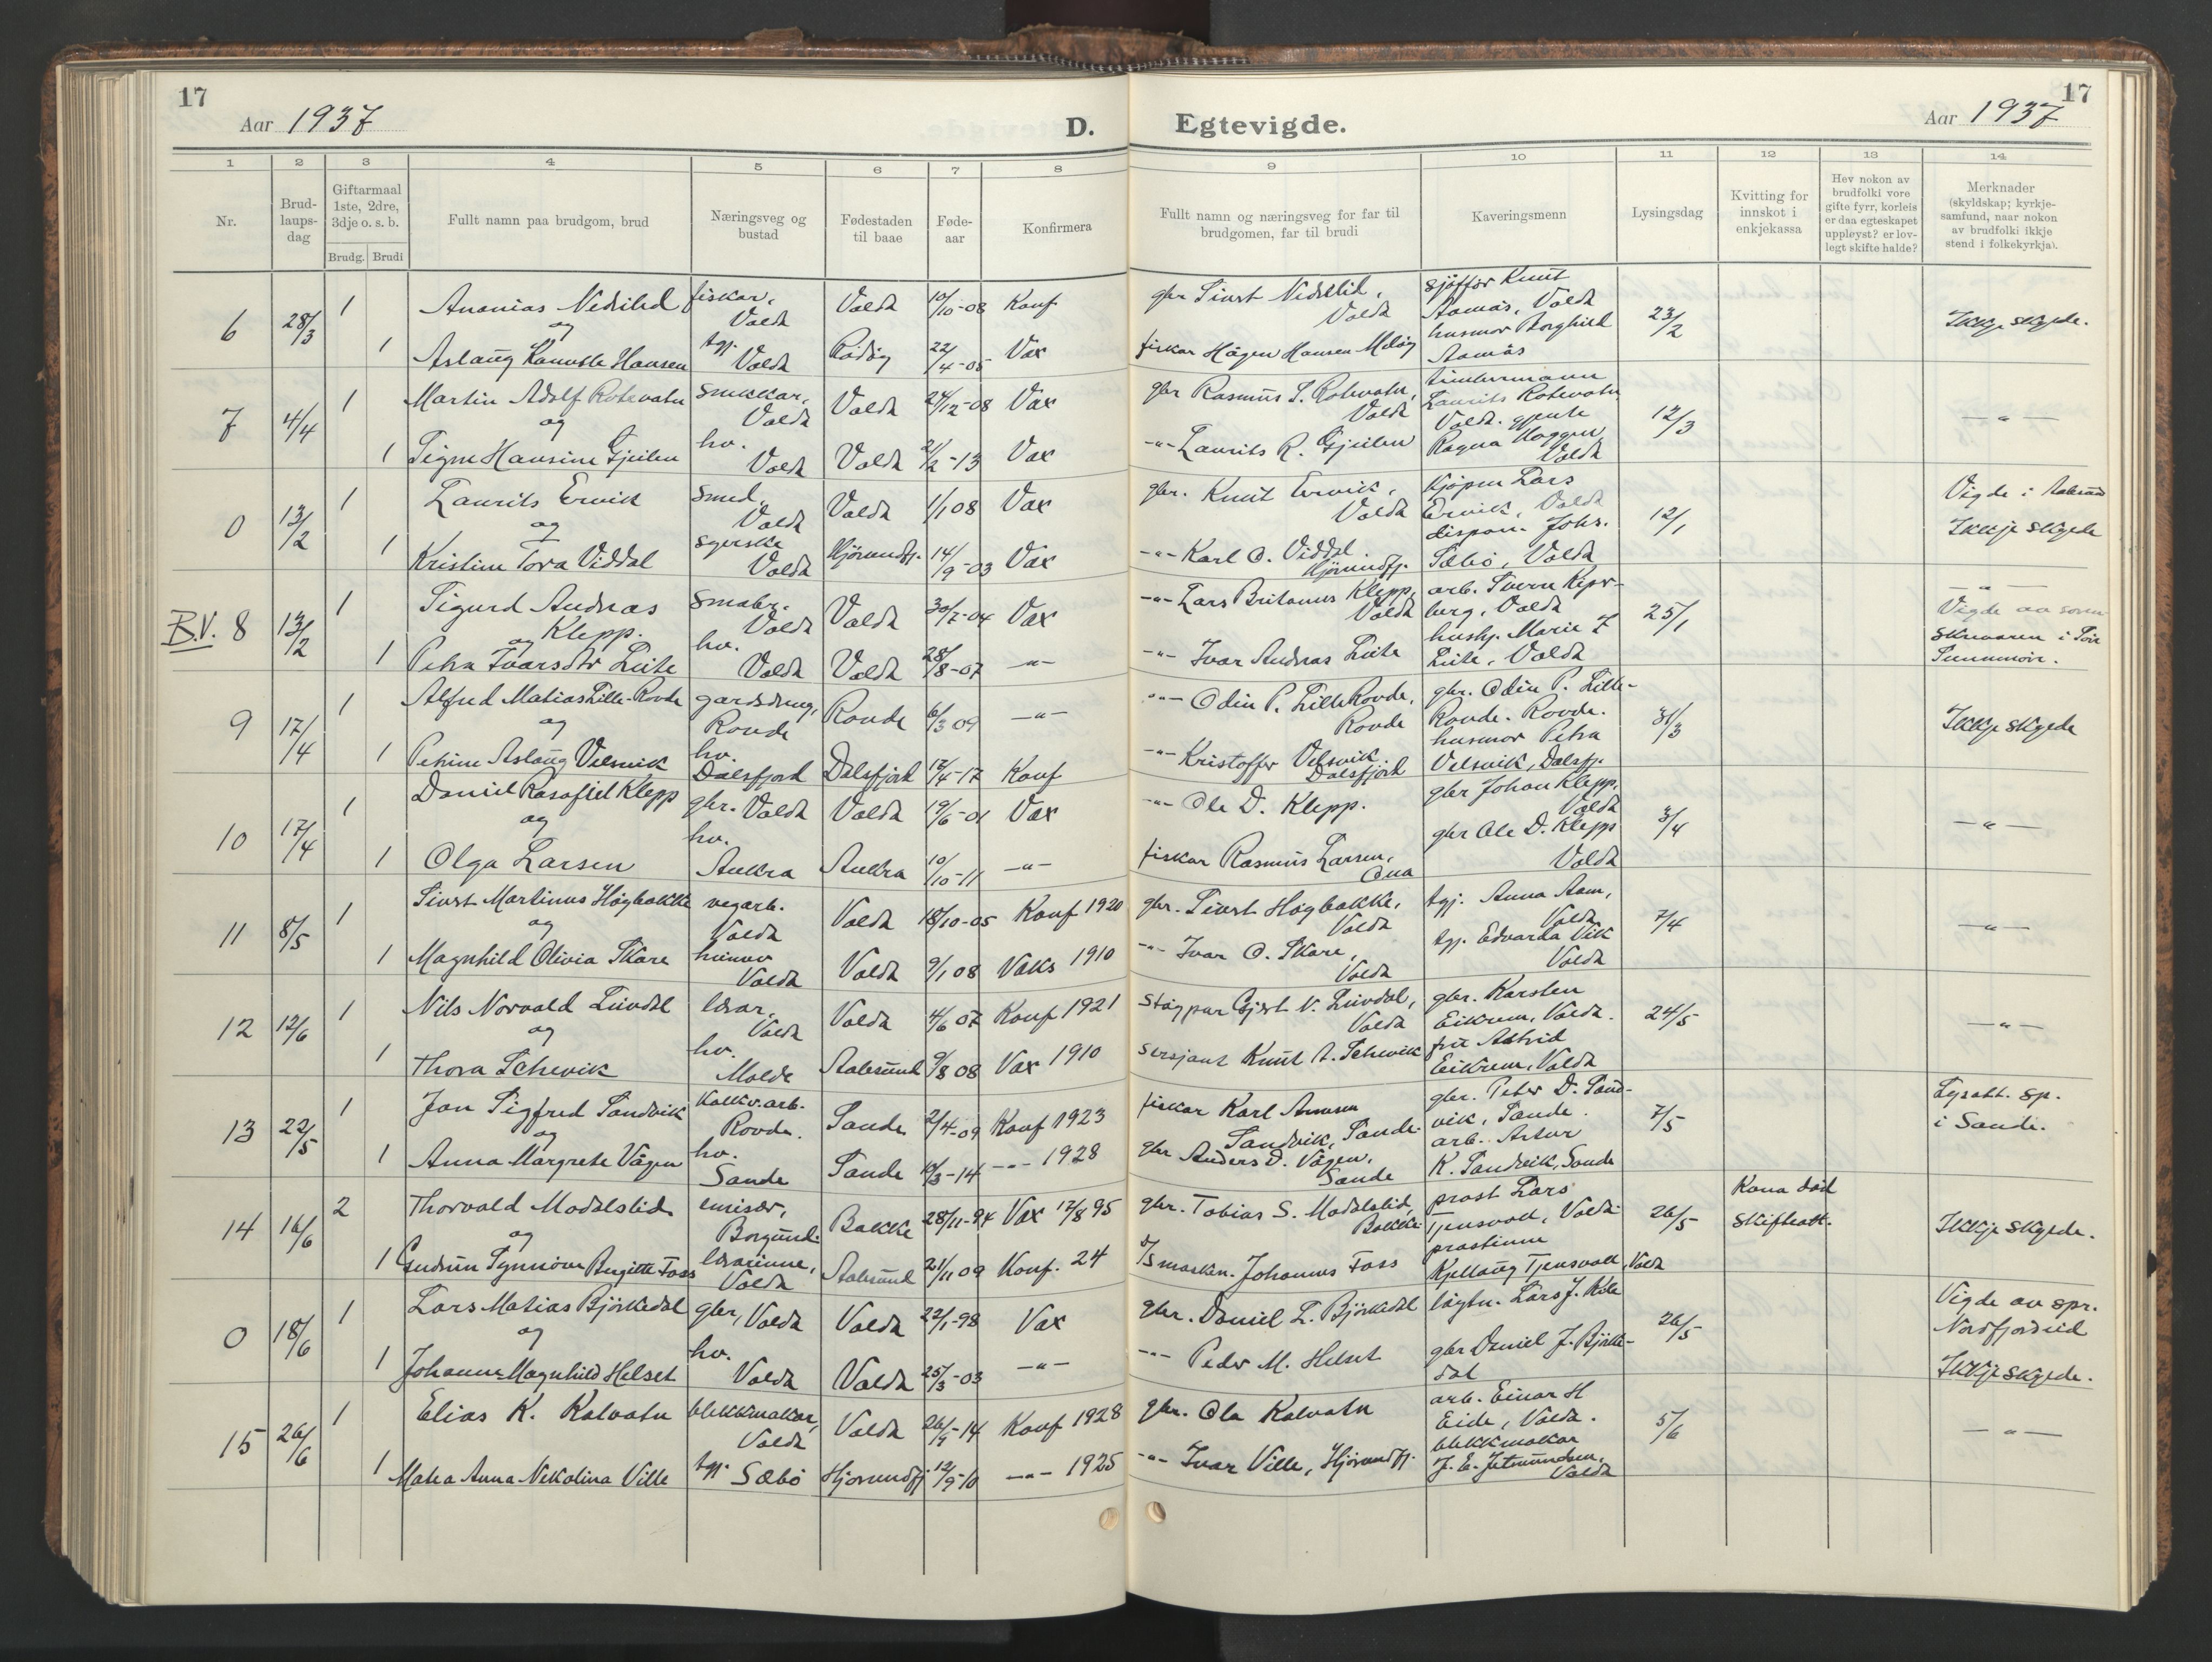 17
Aar 1937
D.
Egtevigde.
Aar 1937
17
1 2 3 4 5 6 7 8 9 10 11 12 13 14
Nr.
Brud-
laups-
dag
Giftarmaal
1ste, 2dre,
3dje o. s. b.
Brudg. Brudi
Fullt namn paa brudgom, brud
Næringsveg og
bustad
Fødestaden
til baae
Føde-
aar
Konfirmera
Fullt namn og næringsveg for far til
brudgomen, far til brudi
Kaveringsmenn
Lysingsdag
Kvitting for
innskot i
enkjekassa
Hev nokon av
brudfolki vore
gifte fyrr, korleis
er daa egteskapet
uppløyst? er lov-
legt skifte halde?
Merknader
(skyldskap; kyrkje-
samfund, naar nokon
av brudfolki ikkje
stend i folkekyrkja).
6 28/3 1 Ananias Nedrelid fiskar, Volda Volda 10/10-08 Konf
og
1 Aslaug Hansen tgj. Volda 22/4-05 Vax
gbr Sivert Nedrelid, Volda
fiskar Hågen Hansen
sjåfør Knut
Aamås, Volda
husmor Borghild
Aamås
23/2
Ikkje skylde.
7 4/4 1 Martin Adolf Rotevatn snikkar, Volda Volda 24/12-08 Vax
og
1 Signe Hansine Gjeilen hv. Volda Volda 2/2-13 Vax
gbr Rasmus S. Rotevatn, Volda
-"- Laurits R. Gjeilen
timbermann
Laurits Rotevatn
Volda. gjente
Ragna
Volda
12/3
-"-
0 13/2 1 Laurits Ervik smed, Volda Volda 1/1 08 Vax
og
1 Kristine Tora Viddal syerske Volda Hjørundfj. 14/9-03 Vax
gbr. Knut Ervik, Volda
-"- Karl O. Viddal Hjørundfj.
kjøpm Lars
Ervik, Volda
dispon. Johs.
Sæbø, Volda
12/1
Vigde i Aalesund
Ikkje skylde
B.V. 8 13/2 1 Sigurd Andreas
Klepp. smabr. Volda Volda 30/2-04 Vax
og
1 Petra Ivarsdtr Liite hv. Volda Volda 28/8-07 -"-
-"- Lars Britanus Klepp, Volda
-"- Ivar Andreas Liite
arb. Sverre
berg, Volda
hushj. Marie I
Liite, Volda
25/1
-"-
Vigde av soren
skrivaren i Søre
Sunnmøre.
9 17/4 1 Alfred Matias Lille-Rovde gardsdreng, Rovde Rovde 6/3 09 -"-
og
1 Petrine Aslaug Velsvik hv. Dalsfjord Dalsfjord 17/4-17 Konf
-"- Odin P. Lille Rovde, Rovde
-"- Kristoffer Velsvik Dalsfjord
gbr. Odin P. Lille-
Rovde. Rovde.
husmor Petra
Velsvik, Dalsfj.
31/3
Ikkje skylde
10 17/4 1 Daniel Rasafiel Klepp gbr. Volda Volda 19/6-01 Vax
og
1 Olga Larsen hv. Aukra Aukra 10/10-11 -"-
-"- Ole D. Klepp.
fiskar Rasmus Larsen, Ona
gbr Johan Klepp,
Volda
gbr Ole D. Klepp
Volda
3/4
-"-
11 8/5 1 Sivert Martinus Høgbakke vegarb. Volda Volda 18/10-05 Konf 1920
og
1 Magnhild Olivia Skare husmor Volda Volda 9/1 08 Vaks 1910
gbr. Sivert Høgbakke, Volda
-"- Ivar O. Skare, Volda
tgj. Anna Aam,
Volda
tgj. Edvarda Vik
Volda
7/4
-"-
12 12/6 1 Nils Norvald Lüvdal lærar, Volda Volda 4/6 07 Konf 1921
og
1 Thora Schevik hv. Molde Aalesund 9/8 08 Vax 1910
Gjert N. Lüvdal, Volda
sersjant Knut A. Schevik
gbr. Karsten
Eikrem, Volda.
frü Astrid
Eikrem, Volda
24/5
-"-
13 22/5 1 Jan Sigfred Sandvik Rovde. Sande 2/4-09 Konf 1923
og
1 Anna Margrete Vågen hv. Sande Sande 10/3-14 -"- 1928
fiskar Karl Arnesen
Sandvik, Sande.
gbr Anders D. Vågen, Sande
gbr. Peter D. Sand-
vik, Sande.
arb. Artur
K. Sandvik, Sande
7/5
Lysatt. sp.
i Sande.
14 16/6 2 Thorvald Modalslid emisær, Borgund. Bakke 28/11-94 Vax 17/8 95
og
1 Gudrun Synnøve Birgitte Foss lærarinne, Volda Aalesund 21/11 09 Konf. 24
gbr. Tobias S. Modalslid, Bakke
maskin. Johannes Foss
prost Lars
Tjensvoll, Volda.
prostinne
Kjellaug Tjensvoll, Volda
26/5
Kona død
skifteatt.
Ikkje skylde.
0 18/6 1 Lars Matias Bjørkedal gbr, Volda Volda 22/1-98 Vax
og
1 Johanne Magnhild Helset hv. Volda Volda 25/3-03 -"-
gbr. Daniel L. Bjørkedal
-"- Peder M. Helset
Lars J. Kile
gbr Daniel J. Bjørke-
dal
26/5
Vigde av spr.
Nordfjordeid
Ikkje skylde.
15 26/6 1 Elias K. Kalvatn blekkmakar, Volda Volda 26/9-14 Konf 1928
1 Matea Anna Nikolina Ville tgj. Sæbø Hjørundfj 12/9-10 -"- 1925
gbr. Ola Kalvatn
-"- Ivar Ville, Hjørundfj.
arb. Einar H
Eide, Volda.
blekkmakar
J. E. Jetmundsen,
Volda
5/6
-"-